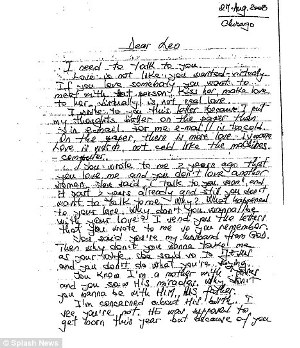 27-Aug. 2008
Chicago
Dear Leo
I need to talk to you.
Love is not like you wanted - virtually.
If you love somebody you want to
meet with that person, kiss her, make love
to her. Virtually is not real love.
I wrote to you this letter because I put
my thoughts better on the paper than
in e-mail. For me e-mail is to cold.
On the paper, there is more love
Love is with, not cold like the machines
computer.
You wrote to me 2 years ago that
you love me and you don't love another
woman. You said I talk to you soon and
it past 2 years already and still you don't
want to talk to me. Why? What happened
to your love? Why don't you wanna live
with your love? I send you the letters
that you wrote to me so you remember.
You said you're my husband from God.
Then why don't you wanna take me
as your wife. You said so is
and you don't do what you're saying.
You know I'm a mother with Jesus
and you saw His miracles. Why don't
you wanna be with HIM, His father.
I'm concerned about His birth. I
see you're not. HE was suppose to
get born this year but because of you
© Splash News